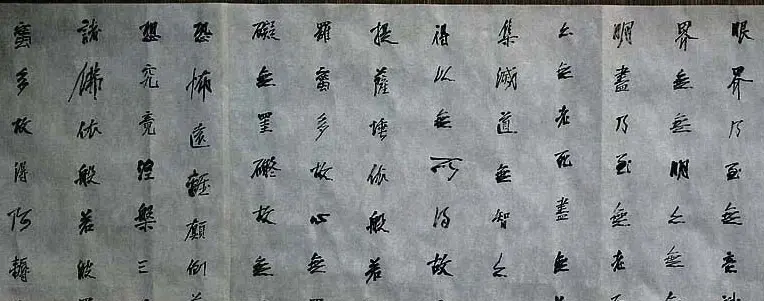 眼界乃至無意
界無無明亦無
明盡乃至無老
亦無老死盡無
集滅道無智亦
得以無所得故
提薩埵依般若
羅蜜多故心無
礙無罣礙故無
恐怖遠離顛倒
想究竟涅槃三
諸佛依般若波
蜜多故得阿耨